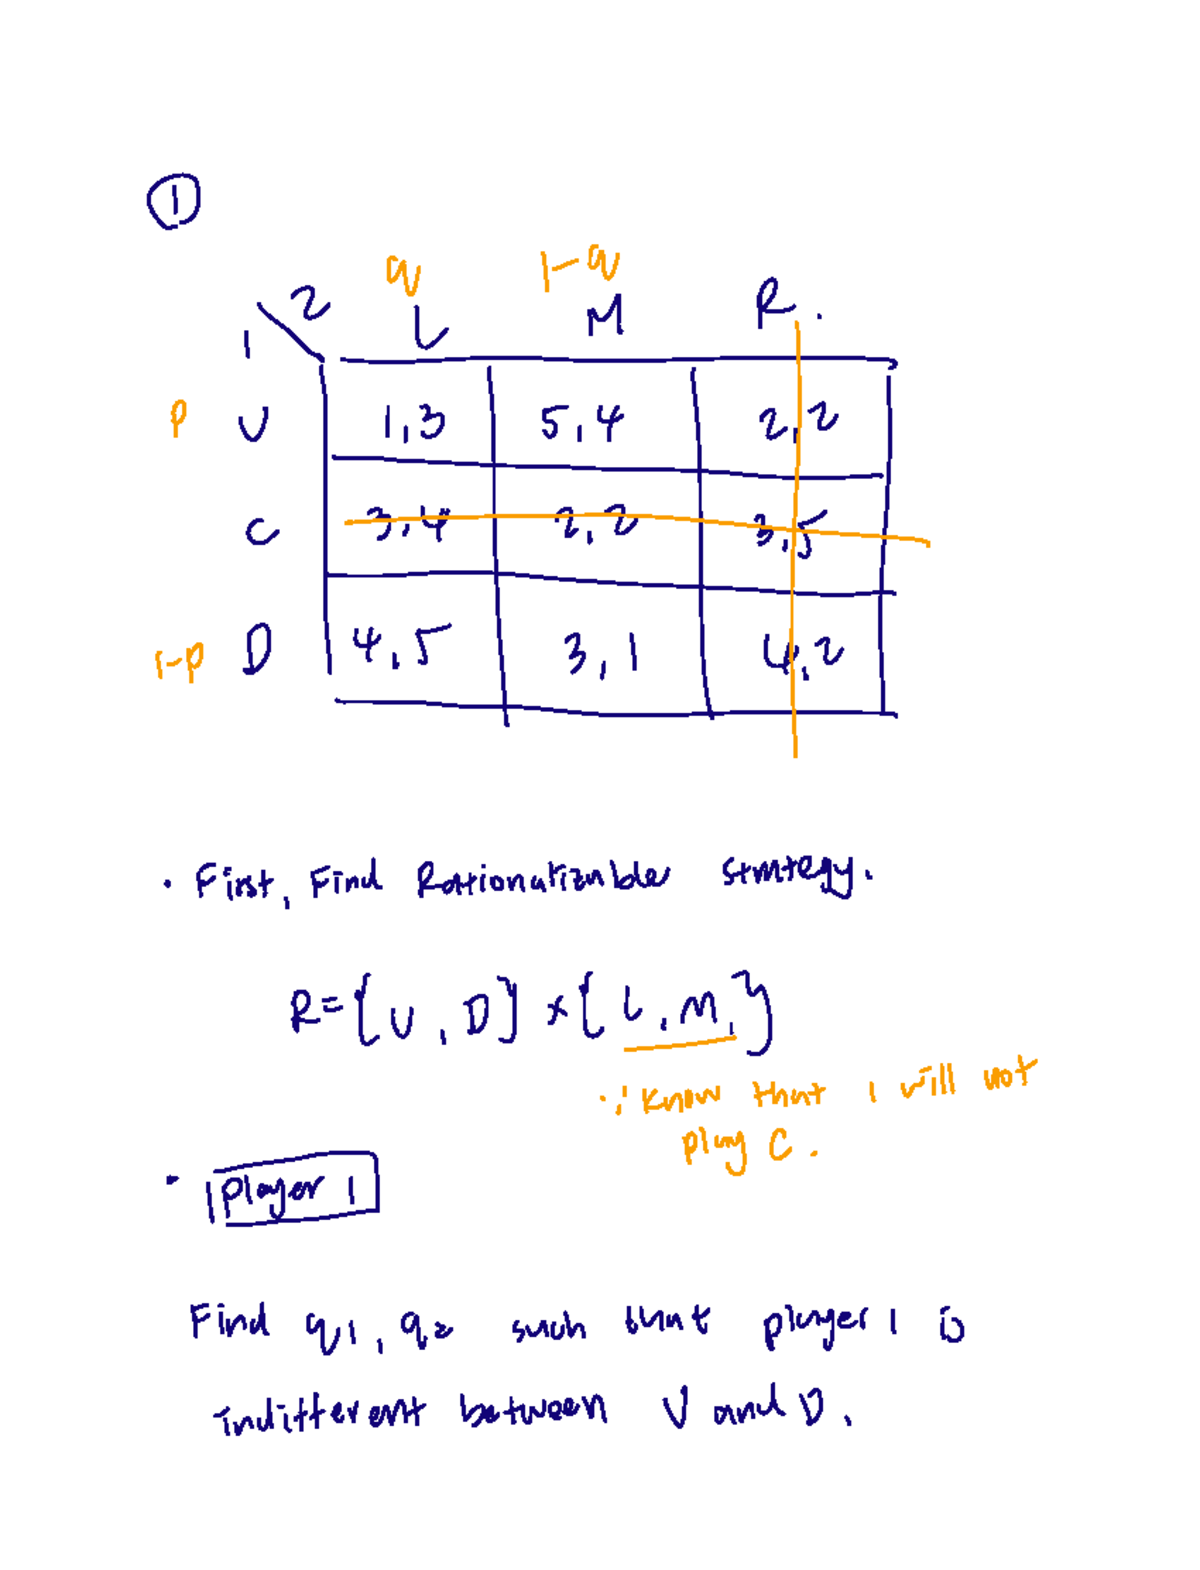 1
q 1-q
1 \ 2 L M R.
p U 1,3 5,4 2,2
C 3,4 2,2 3,5
1-p D 4,5 3,1 4,2
· First, Find Rationalizable strategy.
R={U, D} x {L, M,}
∵ Know that 1 will not
play C.
· Player 1
Find q1, q2 such that player 1 is
indifferent between U and D.